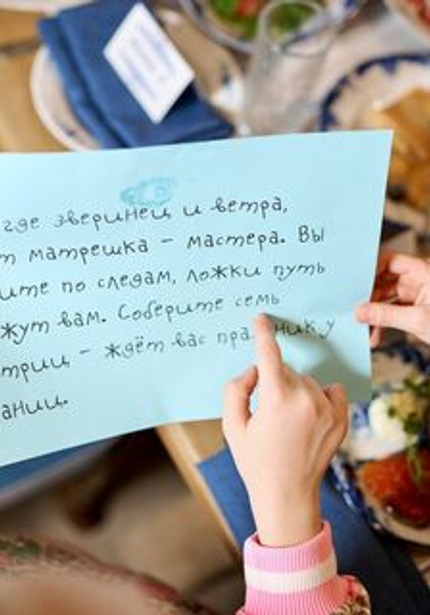 где зверинец и ветра,
т матрешка - мастера. Вы
ите по следам, ложки путь
жут вам. Соберите семь
триц - ждёт вас праз нику
ании.